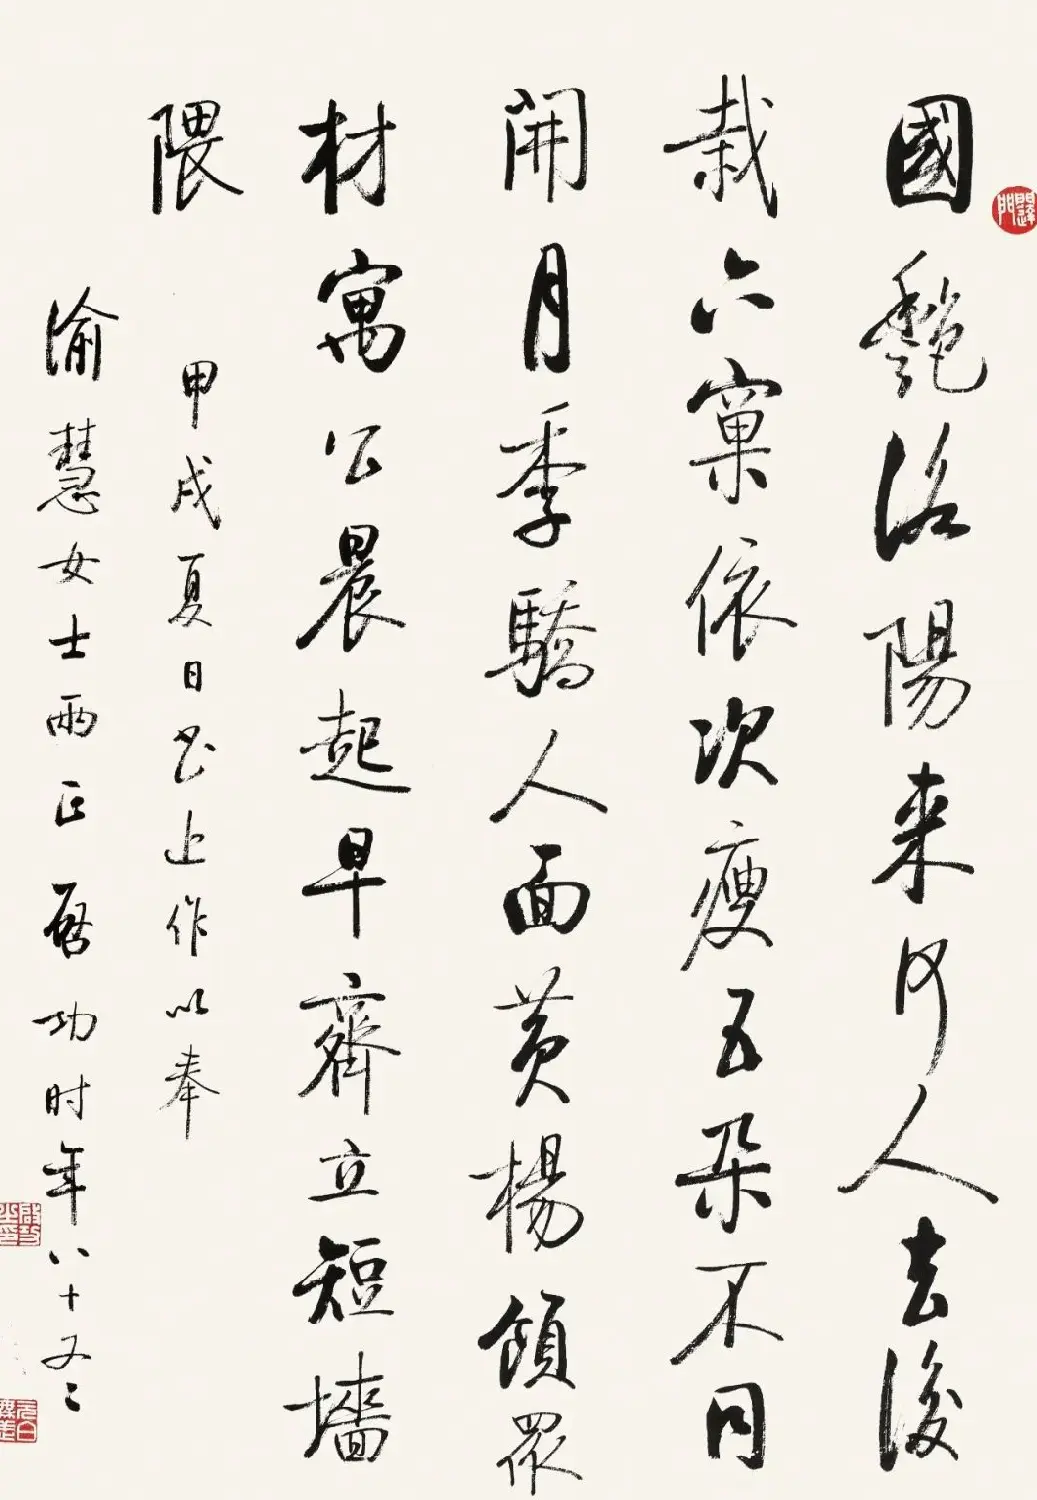 國艷洛陽来何人去後
栽六窠依次瘦五朵不同
開月季驕人面黄楊領眾
材寓公晨起早齊立短墻
隈
甲戌夏日书上作以奉
渝慧女士兩正 啓功时年八十又二